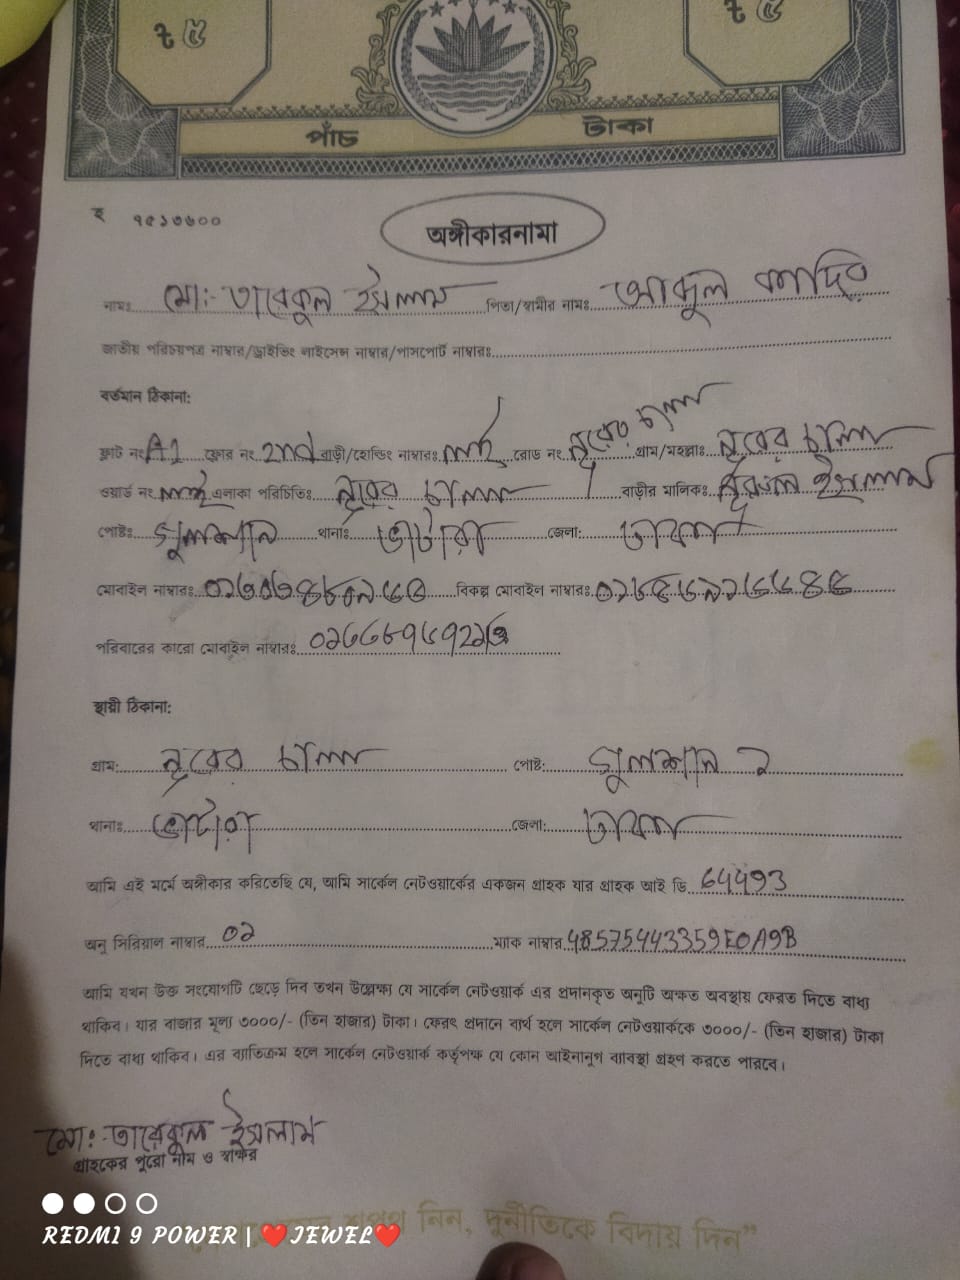 ৳ ৫ ৳ ৫
পাঁচ টাকা
হ ৭৫১৩৬০০
অঙ্গীকারনামা
নামঃ মোঃ তারেকুল ইসলাম পিতা/স্বামীর নামঃ আব্দুল কাদির
জাতীয় পরিচয়পত্র নাম্বার/ড্রাইভিং লাইসেন্স নাম্বার/পাসপোর্ট নাম্বারঃ
বর্তমান ঠিকানা:
ফ্লাট নং A1 ফ্লোর নং 2nd বাড়ী/হোল্ডিং নাম্বারঃ নাই রোড নং নূরের চালা গ্রাম/মহল্লাঃ নূরের চালা
ওয়ার্ড নং নাই এলাকা পরিচিতিঃ নূরের চালা বাড়ীর মালিকঃ ইসলাম
পোষ্টঃ গুলশান থানাঃ ভাটারা জেলা: ঢাকা
মোবাইল নাম্বারঃ বিকল্প মোবাইল নাম্বারঃ
পরিবারের কারো মোবাইল নাম্বারঃ
স্থায়ী ঠিকানা:
গ্রাম: নূরের চালা পোষ্ট: গুলশান ২
থানাঃ ভাটারা জেলা: ঢাকা
আমি এই মর্মে অঙ্গীকার করিতেছি যে, আমি সার্কেল নেটওয়ার্কের একজন গ্রাহক যার গ্রাহক আই ডি 64493
অনু সিরিয়াল নাম্বার ০১ ম্যাক নাম্বার 48575443359E0A9B
আমি যখন উক্ত সংযোগটি ছেড়ে দিব তখন উল্লেখ্য যে সার্কেল নেটওয়ার্ক এর প্রদানকৃত অনুটি অক্ষত অবস্থায় ফেরত দিতে বাধ্য
থাকিব। যার বাজার মূল্য ৩০০০/- (তিন হাজার) টাকা। ফেরৎ প্রদানে ব্যর্থ হলে সার্কেল নেটওয়ার্ককে ৩০০০/- (তিন হাজার) টাকা
দিতে বাধ্য থাকিব। এর ব্যাতিক্রম হলে সার্কেল নেটওয়ার্ক কর্তৃপক্ষ যে কোন আইনানুগ ব্যাবস্থা গ্রহণ করতে পারবে।
মোঃ তারেকুল ইসলাম
গ্রাহকের পুরো নাম ও স্বাক্ষর
শপথ নিন, দুর্নীতিকে বিদায় দিন"
REDMI 9 POWER | ❤️JEWEL❤️